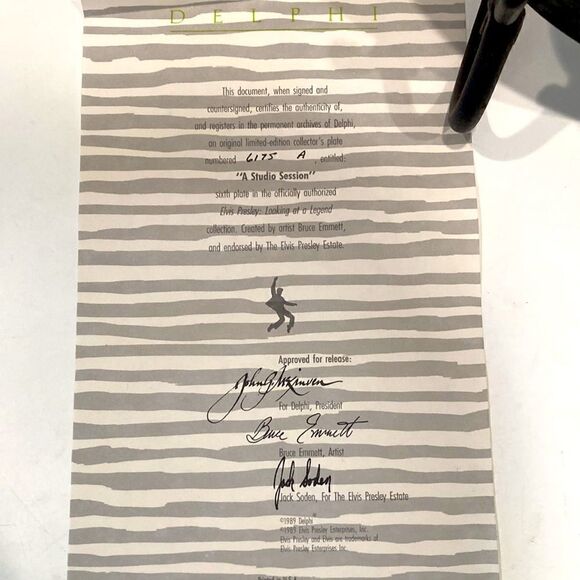 DELPHI
This document, when signed and
countersigned, certifies the authenticity of,
and registers in the permanent archives of Delphi,
an original limited-edition collector's plate
numbered 6175 A , entitled:
"A Studio Session"
sixth plate in the officially authorized
Elvis Presley: Looking at a Legend
collection. Created by artist Bruce Emmett,
and endorsed by The Elvis Presley Estate.
Approved for release:
For Delphi, President
Bruce Emmett
Bruce Emmett, Artist
Jack Soden
Jack Soden, For The Elvis Presley Estate
©1989 Delphi™
©1989 Elvis Presley Enterprises, Inc.
Elvis Presley and Elvis are trademarks of
Elvis Presley Enterprises Inc.
Printed in U.S.A.